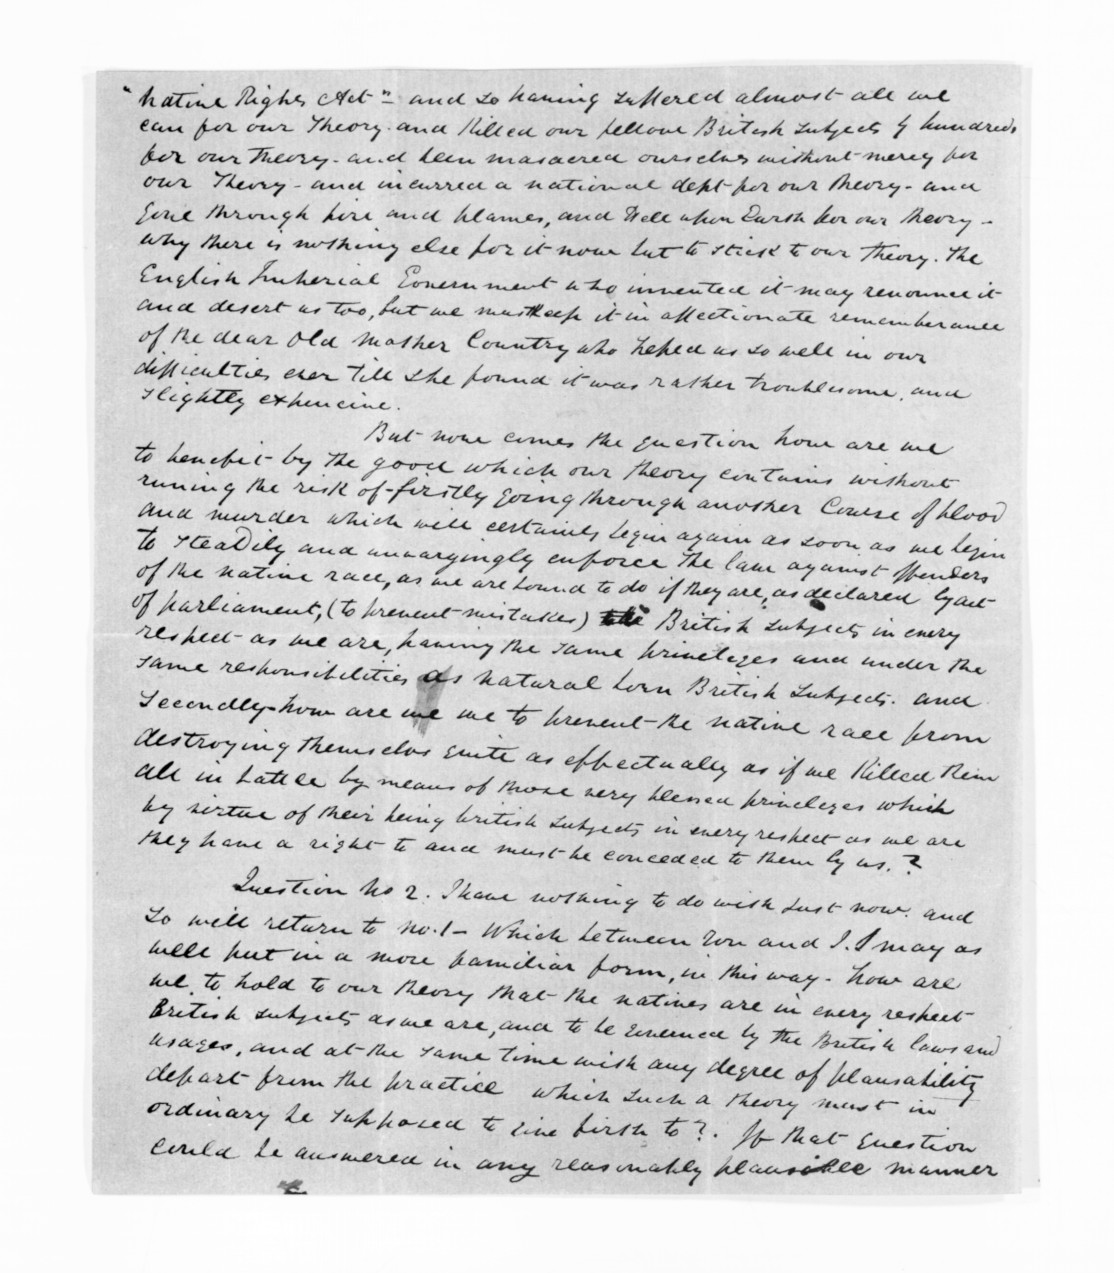 "Native Rights Act" and so having suffered almost all we
can for our Theory. and Killed our fellow British subjects by hundreds
for our Theory - and been masacred ourselves without mercy for
our Theory - and incurred a national dept for our theory - and
gone through fire and flames, and Hell upon Earth for our theory -
why there is nothing else for it now but to stick to our Theory. The
English Imperial Government who invented it may renounce it
and desert us too, but we must keep it in affectionate rememberance
of the dear Old Mother Country who helped us so well in our
difficulties ever till she found it was rather troublesome, and
slightly expencive.
But now comes the question how are we
to benefit by the good which our theory contains without
runing the risk of - firstly going through another Course of blood
and murder which will certainly begin again as soon as we begin
to steadily and unvaryingly enforce the law against offenders
of the native race, as we are bound to do if they are, as declared by act
of parliament, (to prevent mistakes) British subjects in every
respect as we are, having the same priveleges and under the
same responsibilities as natural born British subjects. and
Secondly - how are we we to prevent the native race from
destroying themselves quite as effectually as if we Killed them
all in battle by means of those very blessed priveleges which
by virtue of their being british subjects in every respect as we are
they have a right to and must be conceded to them by us.?
Question No 2. I have nothing to do with just now. and
so will return to No. 1 - Which between You and I. I may as
well put in a more familiar form, in this way - how are
we to hold to our theory that the natives are in every respect
British subjects as we are, and to be governed by the British laws and
usages, and at the same time with any degree of plausability
depart from the practice which such a theory must in
ordinary be supposed to give birth to?. If that question
could be answered in any reasonably plausible manner